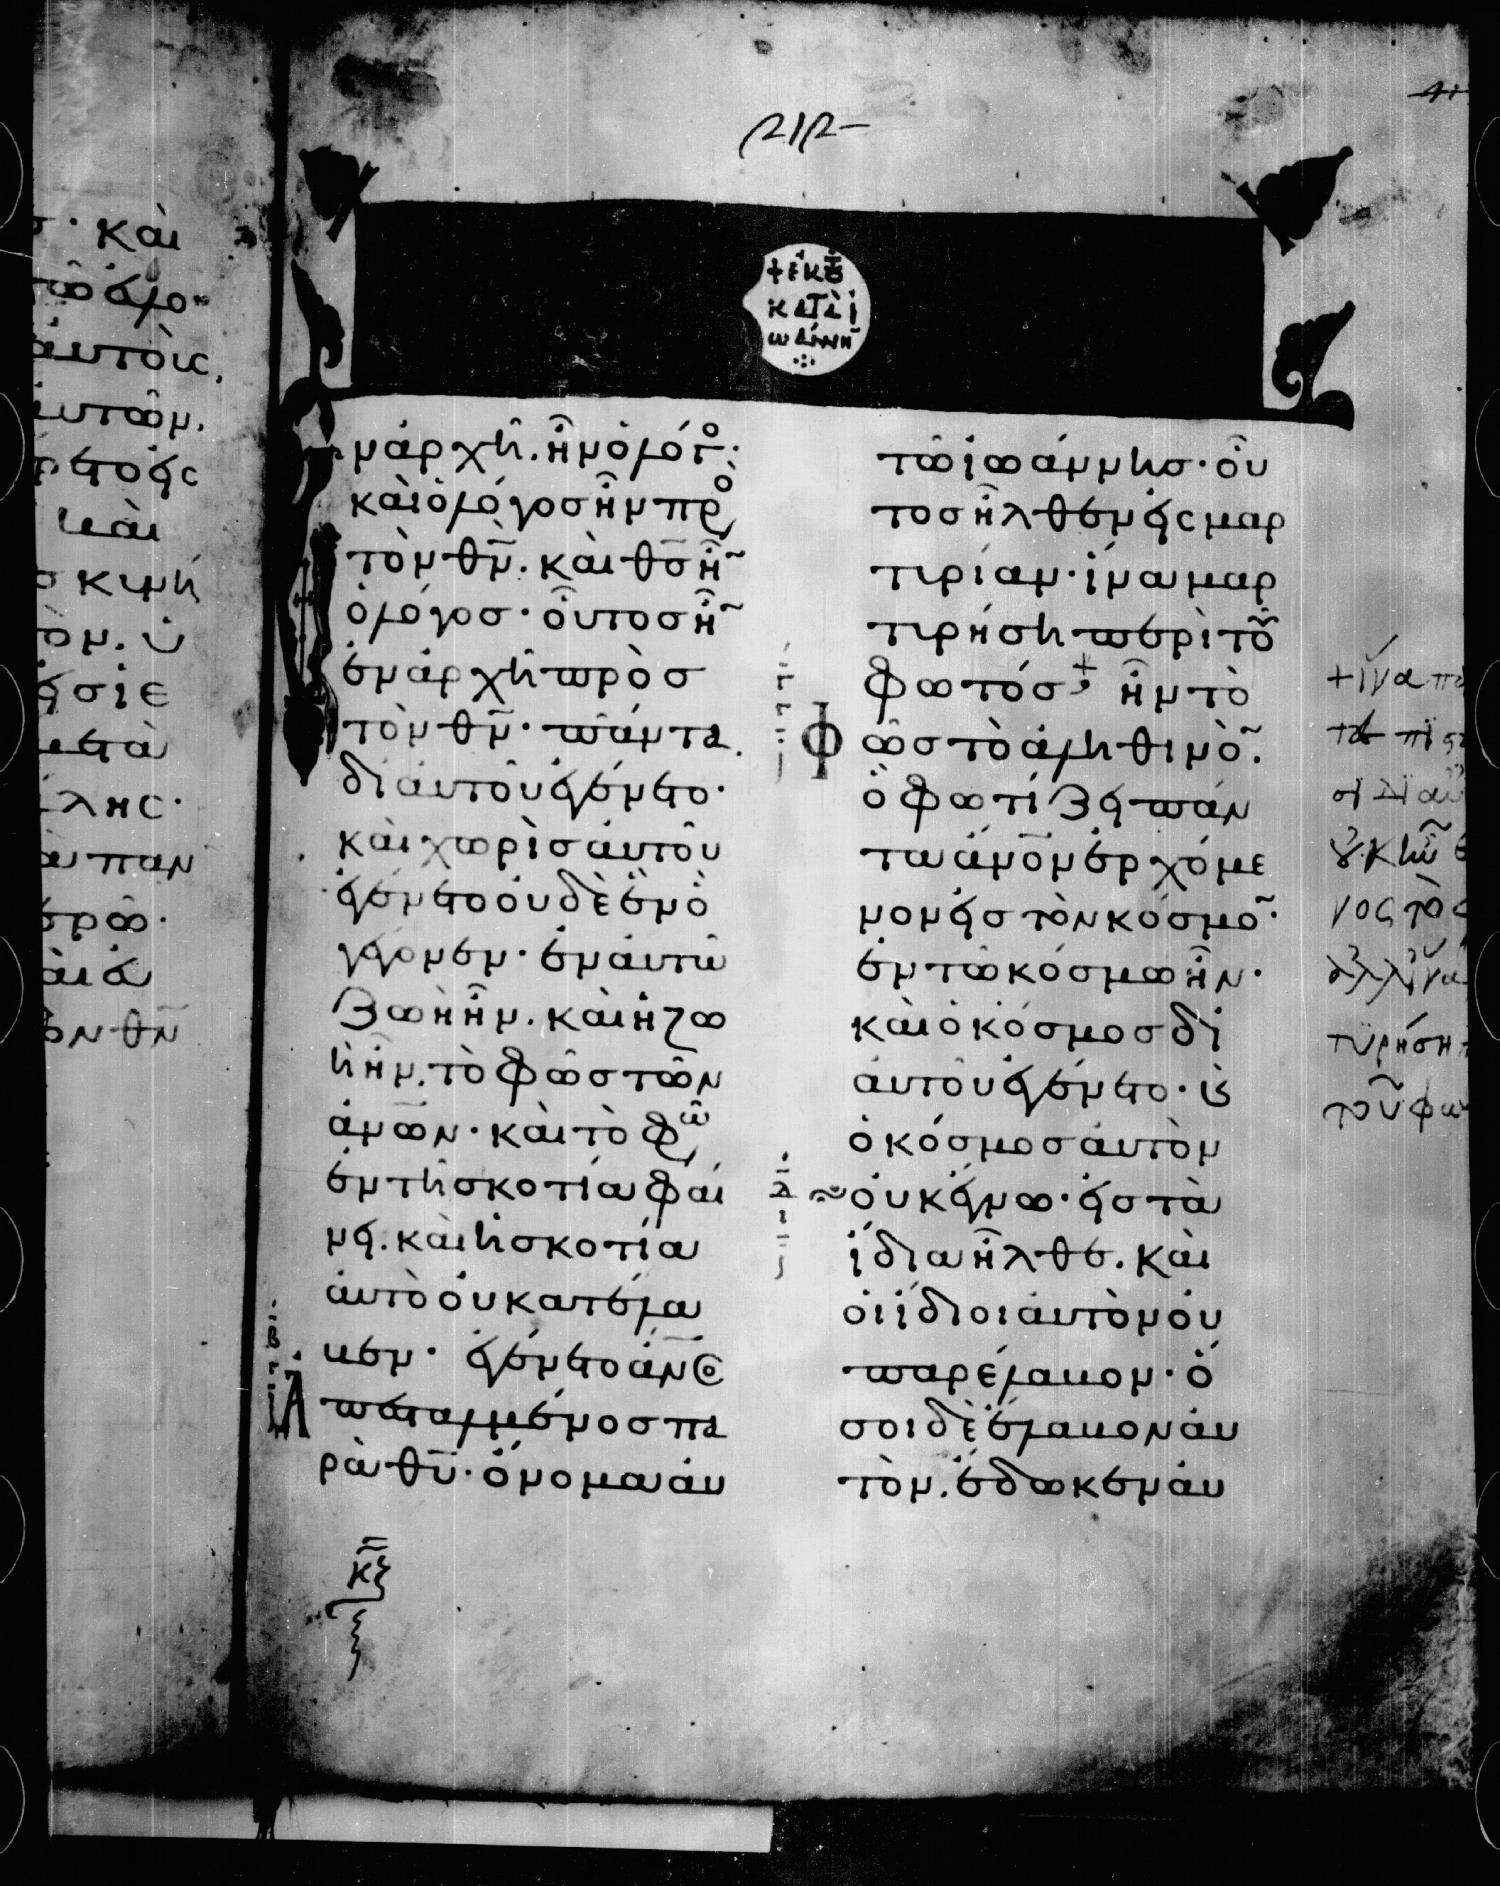 212
· καὶ
αὐτοῖς,
αὐτῶν.
καὶ
παν
θν̄
+ ἐκ τοῦ
κατὰ ἰ
ωάννη
ν ἀρχῆ. ἦν ὁ λόγο·
καὶ ὁ λόγοσ ἦν πρὸ
τὸν θν̄. καὶ θσ̄ ἦ̄
ὁ λόγοσ· οὗτοσ ἦ̄
ἐν ἀρχῆ πρὸσ
τὸν θν̄· πάντα
δι αὐτοῦ ἐγένετο·
καὶ χωρὶσ αὐτοῦ
ἐγένετο οὐδὲ ἓν ὃ
γέγονεν· ἐν αὐτῶ
ζωὴ ἦν. καὶ ἡ ζω
ὴ ἦν. τὸ φῶσ τῶν
ἀν̄ων· καὶ τὸ φῶ
ἐν τῆ σκοτία φαί
νει. καὶ ἡ σκοτία
αὐτὸ οὐ κατέλα
βεν· ἐγένετο ἀν̄οσ
ἀπεσταλμένοσ πα
ρὰ θῡ· ὄνομα αὐ
κ̄ς
τῶ ἰωάννησ· οὗ
τοσ ἦλθεν εἰς μαρ
τιρίαν· ἵνα μαρ
τιρήση περὶ τοῦ
φωτόσ·+ ἦν τὸ
Φῶσ τὸ ἀληθινὸ̄.
ὃ φωτίζει πάν
τα ἄν̄ον ἐρχόμε
νον εἰσ τὸν κόσμο̄·
ἐν τῶ κόσμω ἦν·
καὶ ὁ κόσμοσ δι
αὐτοῦ ἐγένετο· ϗ
ὁ κόσμοσ αὐτὸν
οὐκ ἔγνω· εἰσ τὰ
ἴδια ἦλθε. καὶ
οἱ ἴδιοι αὐτὸν οὐ
παρέλαβον· ὅ
σοι δὲ ἔλαβον αὐ
τὸν. ἔδωκεν αὐ
+ ἵνα πά
οι δι αὐ
νος τὸ
ἀλλ ἵνα
τυρήση
τοῦ φω